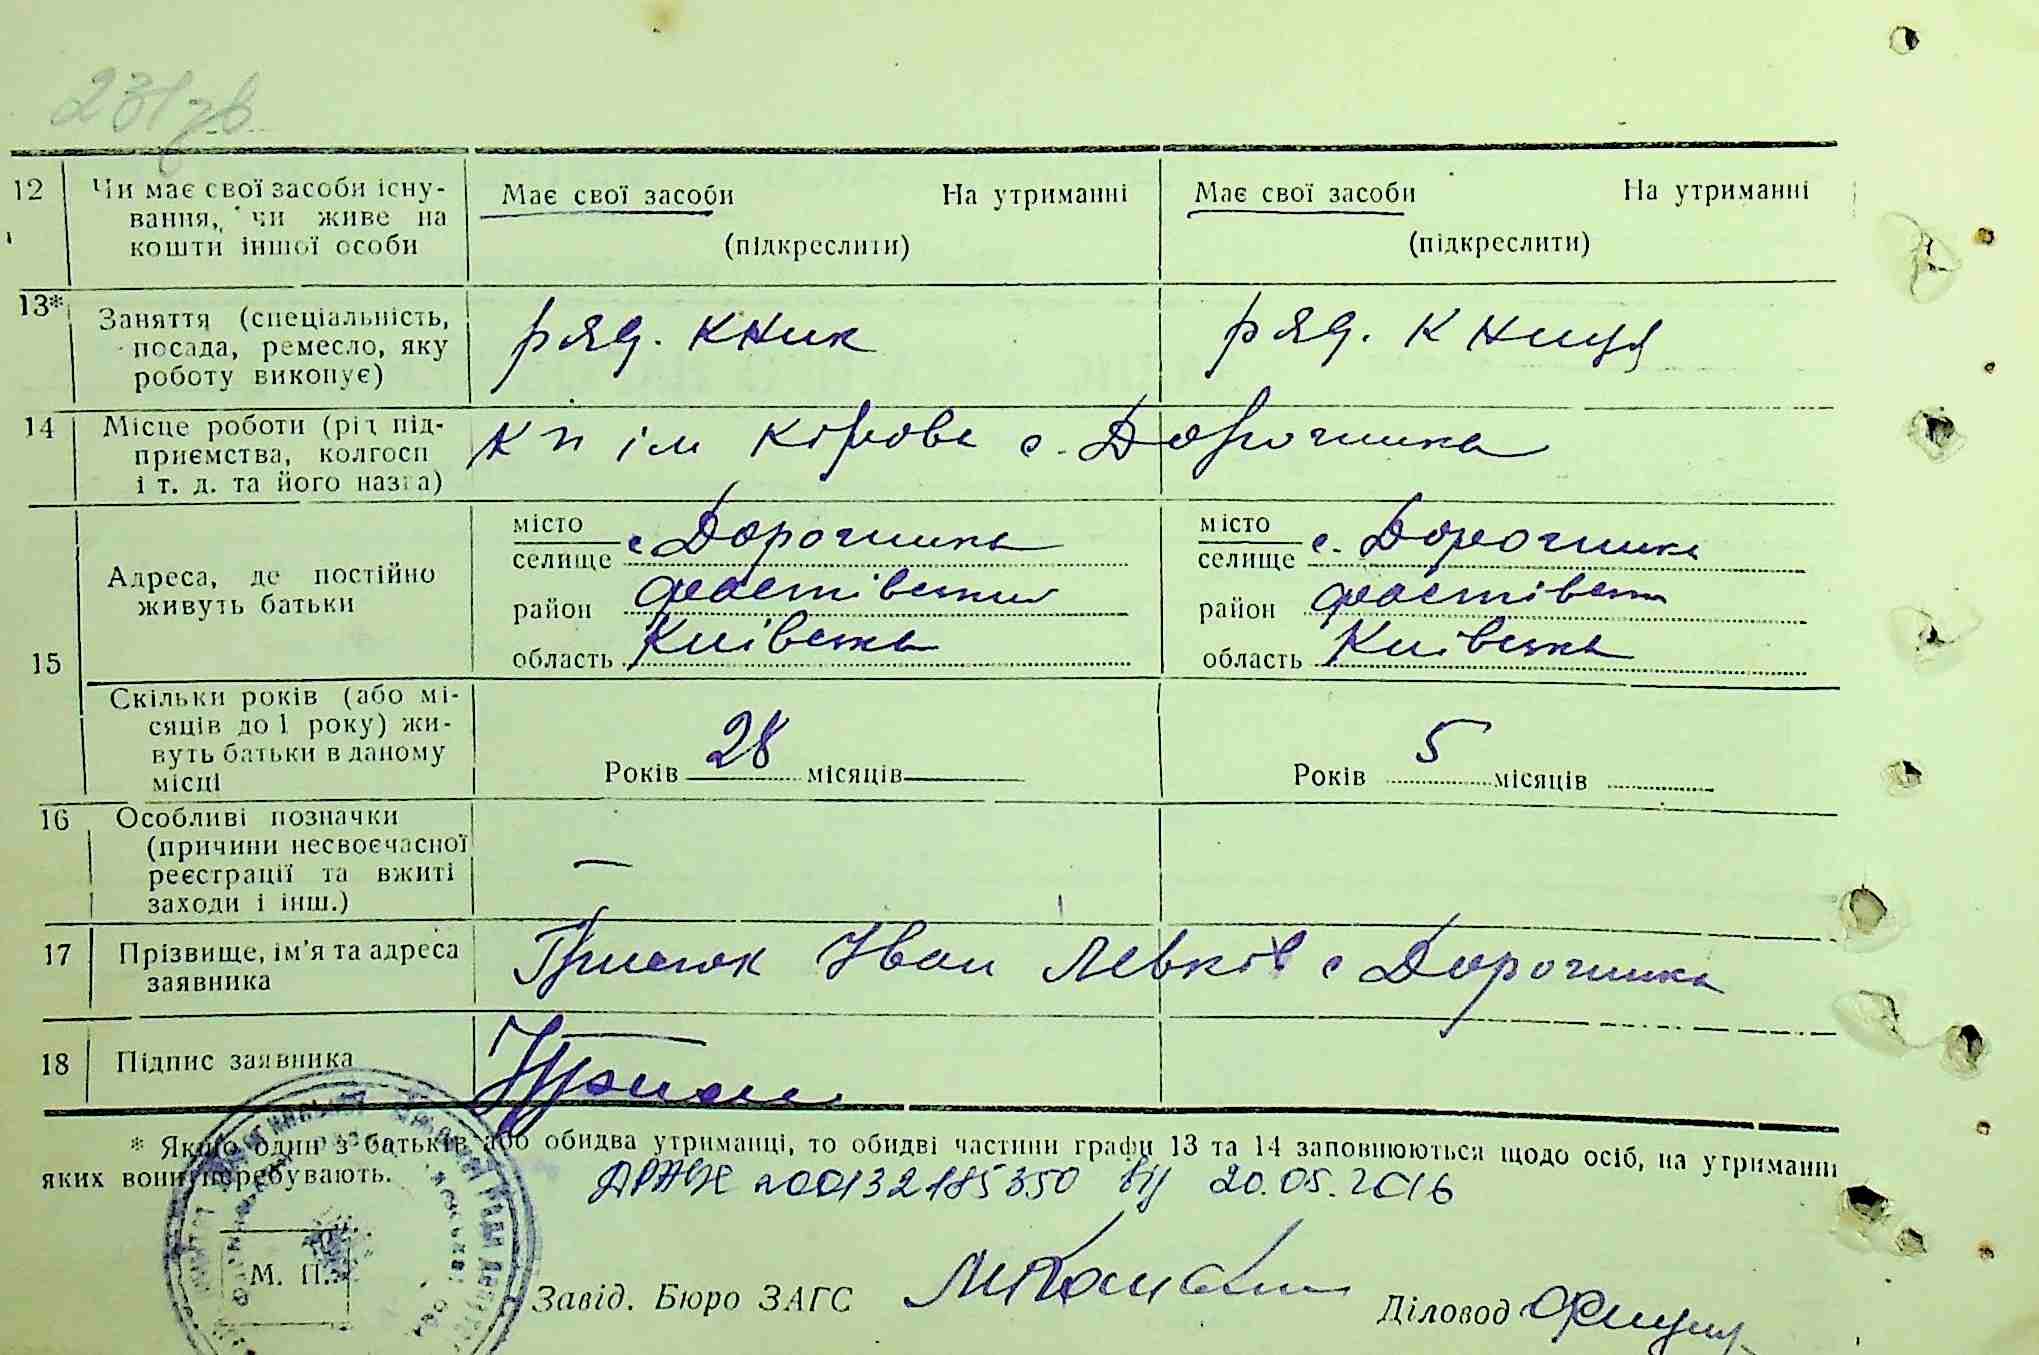 231зв
12 Чи має свої засоби існу-
вання, чи живе на
кошти іншої особи
Має свої засоби На утриманні
(підкреслити)
Має свої засоби На утриманні
(підкреслити)
13* Заняття (спеціальність,
посада, ремесло, яку
роботу виконує)
ряд. кник
ряд. книця
14 Місце роботи (рід під-
приємства, колгосп
і т. д. та його назва)
к п ім Кірова с. Дорогинка
15 Адреса, де постійно
живуть батьки
місто
селище с Дорогинка
район Фастівський
область Київська
місто
селище с. Дорогинка
район Фастівськ
область Київська
Скільки років (або мі-
сяців до 1 року) жи-
вуть батьки в даному
місці
Років 28 місяців
Років 5 місяців
16 Особливі позначки
(причини несвоєчасної
реєстрації та вжиті
заходи і інш.)
—
17 Прізвище, ім'я та адреса
заявника
Іван Левків с Дорогинка
18 Підпис заявника
* Якщо один з батьків або обидва утриманці, то обидві частини графи 13 та 14 заповнюються щодо осіб, на утриманні
яких вони перебувають.
ДРАЦС 200132185350 від 20.05.2016
М. П.
Завід. Бюро ЗАГС
Діловод